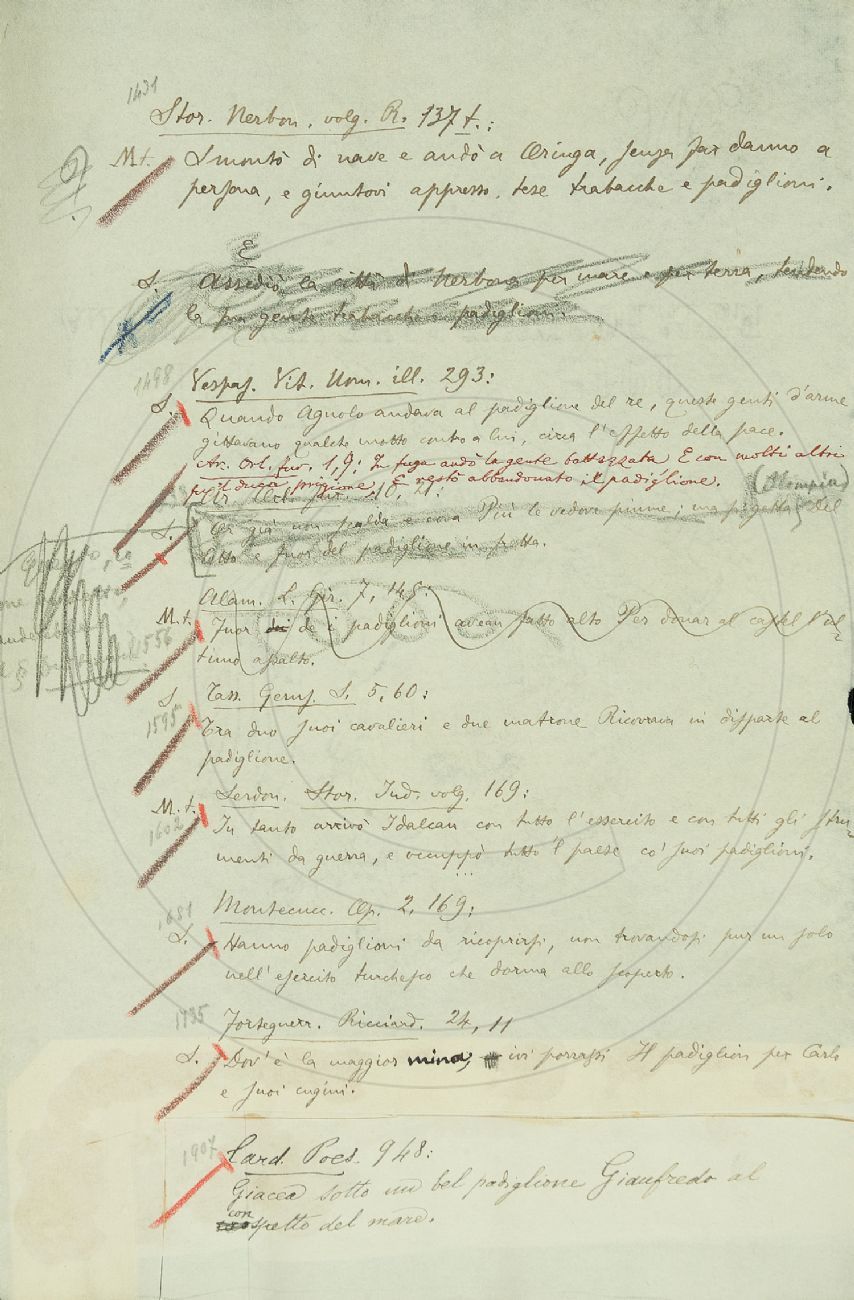 1431
Stor. Nerbon. volg. R. 137 t.:
M.t. Smontò di nave e andò a Oringa, senza far danno a
persona, e giuntovi appresso, tese trabacche e padiglioni.
E
S. Assediò la città di Nerbona per mare e per terra, tendendo
la sua gente trabacche e padiglioni.
1498
Vespas. Vit. Uom. ill. 293:
S. Quando Agnolo andava al padiglione del re, queste genti d'arme
gittavano qualche motto contro a lui, circa l'effetto della pace.
Ar. Orl. fur. 1, 9: In fuga andò la gente battezzata E con molti altri
fu 'l duca prigione, E restò abbandonato il padiglione.
(Olimpia)
S. Più le vedove piume; ma del
letto e fuor del padiglione in fretta.
Alam. L. Gir. 7, 145:
M.t. Fuor de i padiglioni avean fatto alto Per donar al castel l'ul-
timo assalto.
1556
S. Tass. Gerus. L. 5, 60:
1595
Tra duo suoi cavalieri e due matrone Ricovrava in disparte al
padiglione.
M.t. Serdon. Stor. Ind. volg. 169:
1602
In tanto arrivò Idalcan con tutto l'essercito e con tutti gli stru-
menti da guerra, e occuppò tutto 'l paese co' suoi padiglioni.
1681
Montecucc. Op. 2, 169:
S. Hanno padiglioni da ricoprirsi, non trovandosi pur un solo
nell'esercito turchesco che dorma allo scoperto.
1735
Forteguerr. Ricciard. 24, 11
S. Dov'è la maggior mina, ivi porrassi Il padiglion per Carlo
e suoi cugini.
1907
Card. Poes. 948:
Giacea sotto un bel padiglione Gianfredo al
con
spetto del mare.